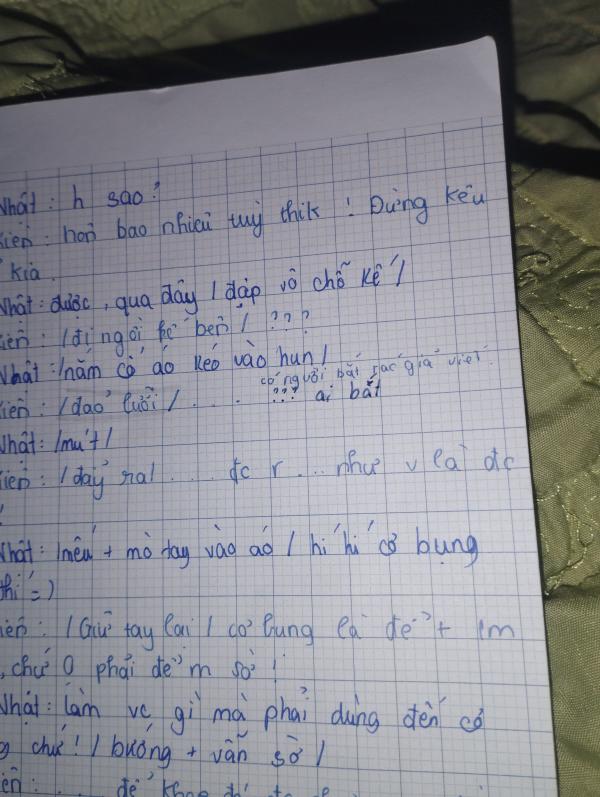 Nhật: h sao?
Kiên: hon bao nhiêu tuỳ thik ! Đừng kêu
kìa.
Nhật: được, qua đây / đập vô chỗ kế /
Kiên: / đi ngồi kế bên / ???
Nhật: / nắm cổ áo kéo vào hun /
có người bắt tác giả viết.
Kiên: / đảo lưỡi / ..... ??? ai bắt
Nhật: / mút /
Kiên: / đẩy ra / .... đc r ... như v là đc
Nhật: / nếu + mò tay vào áo / hí hí cơ bụng
thí =)
Kiên: / Giữ tay lại / cơ bụng là để t
, chứ 0 phải để m sờ !
Nhật: làm vc gì mà phải dùng đến cơ
chứ ! / bướng + vẫn sờ /
... để